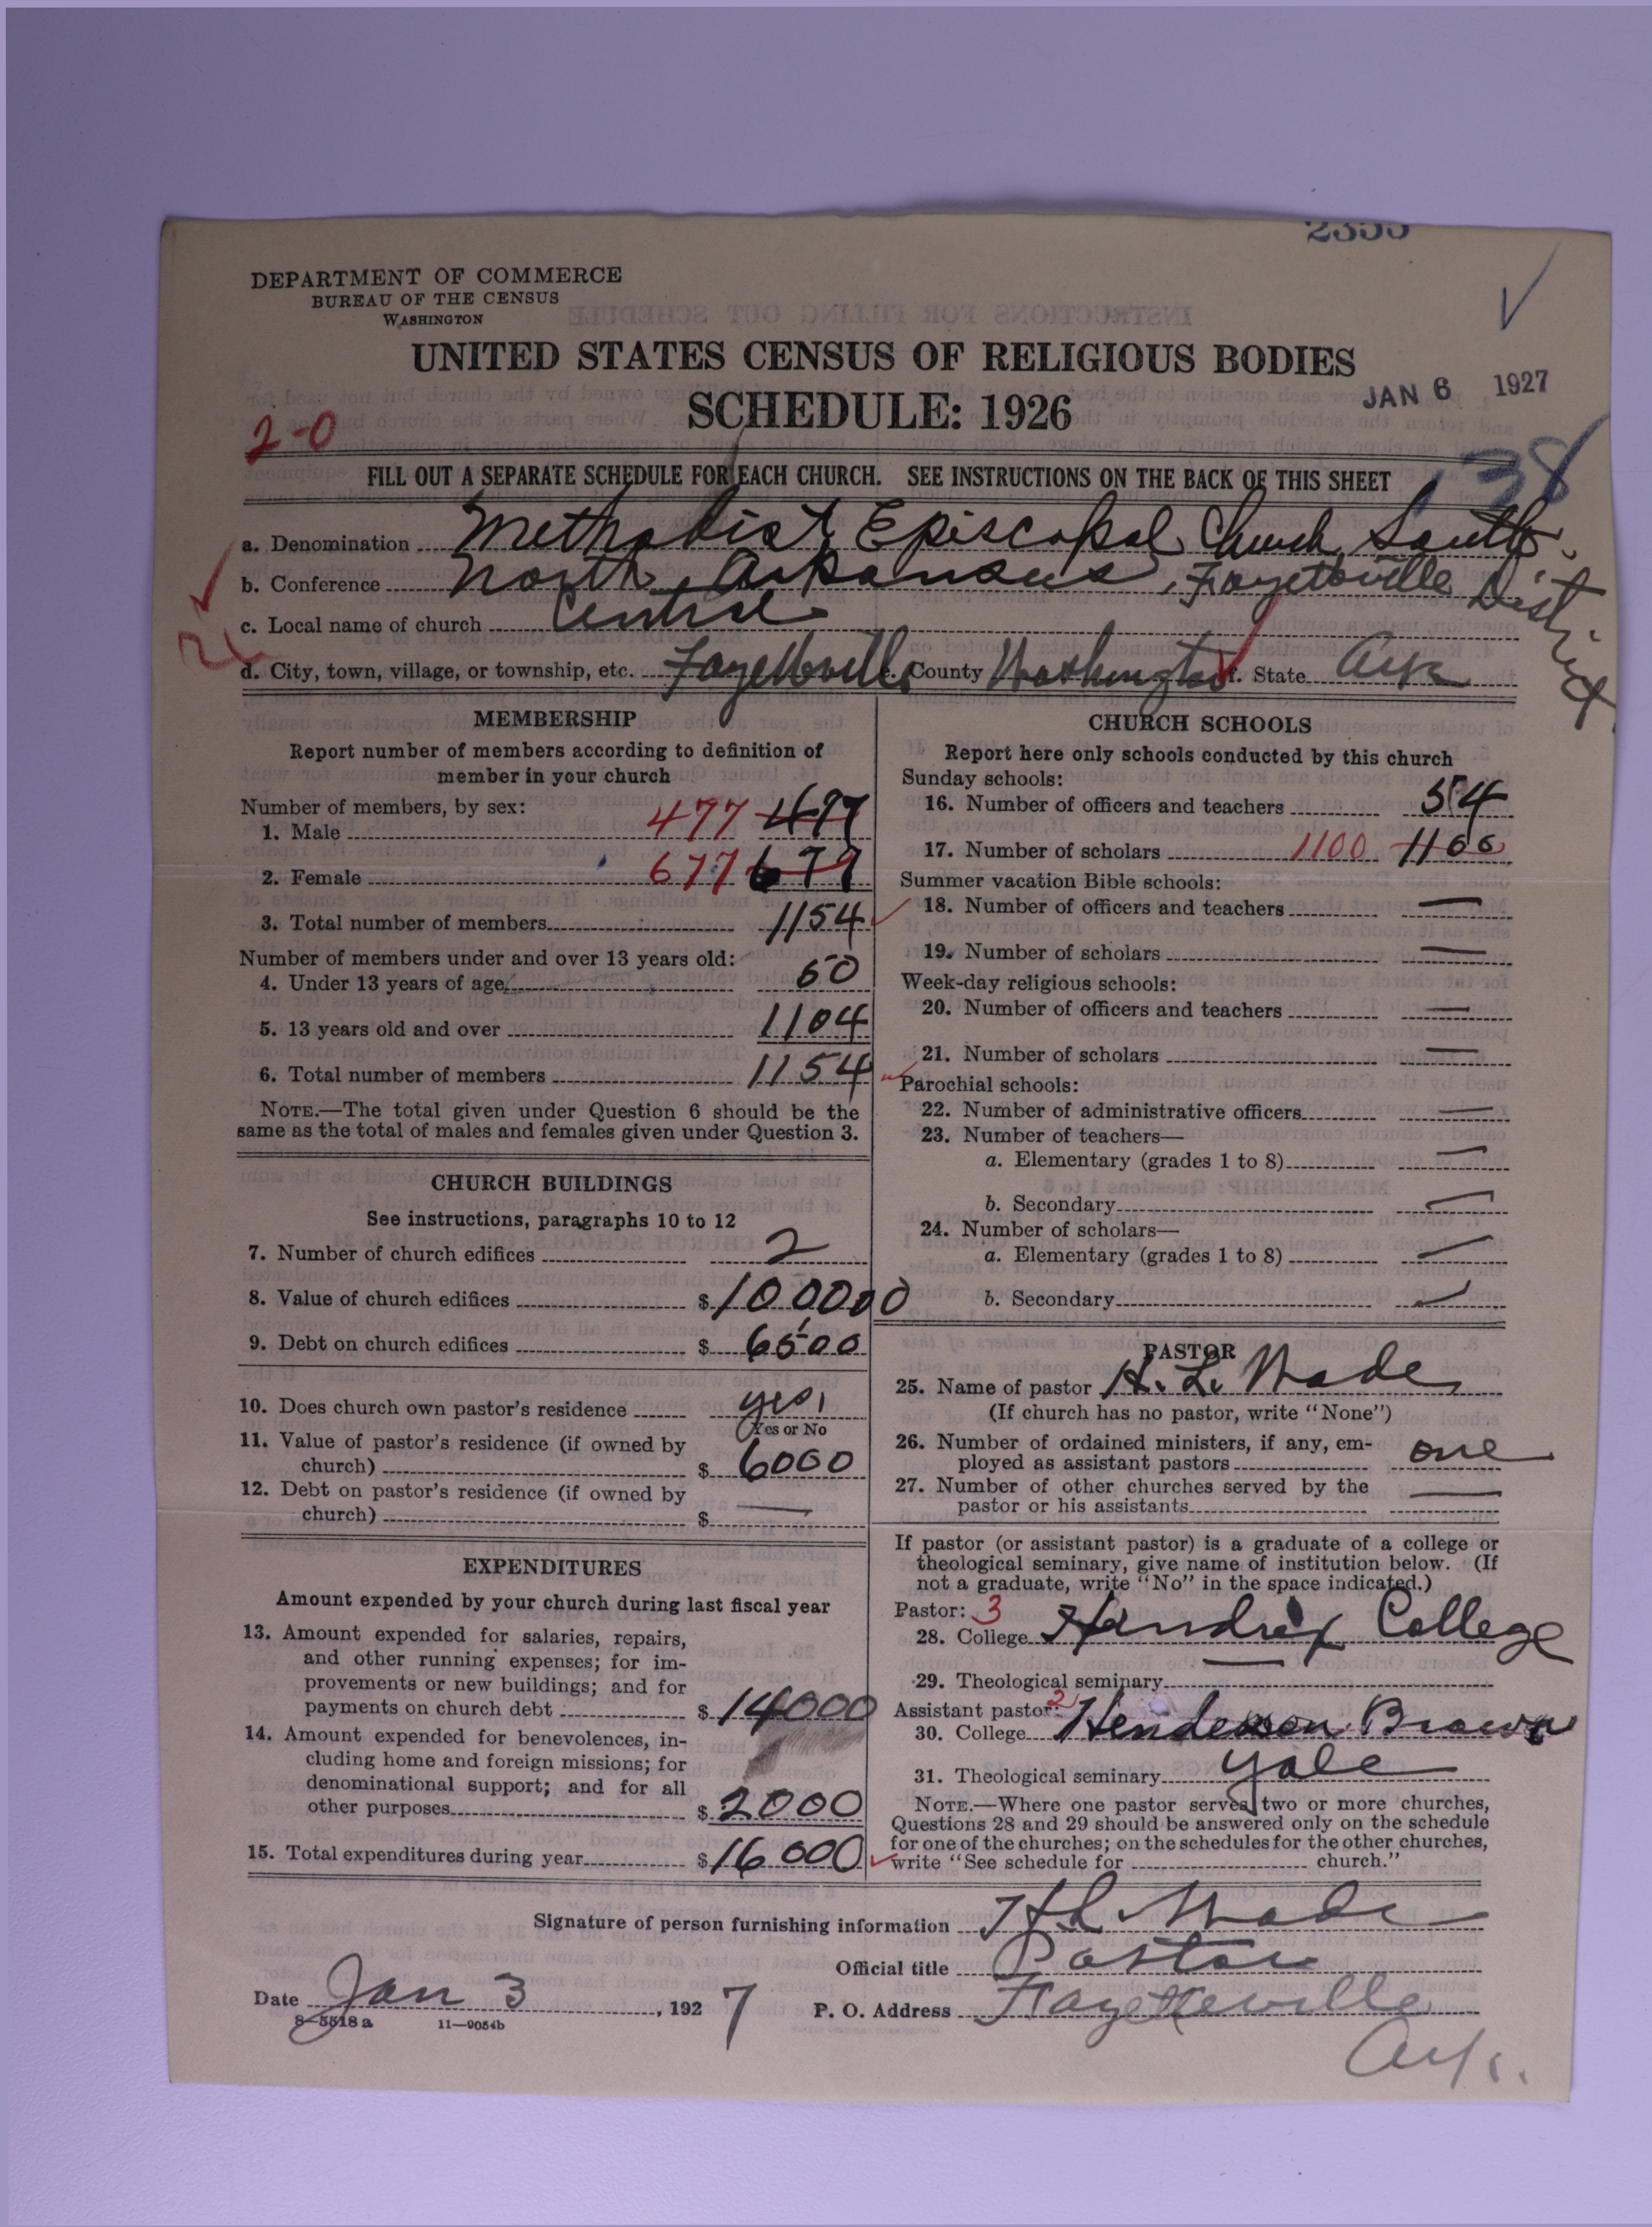 DEPARTMENT OF COMMERCE
BUREAU OF THE CENSUS
WASHINGTON
UNITED STATES CENSUS OF RELIGIOUS BODIES
SCHEDULE: 1926
JAN 6 1927
2-0
138
FILL OUT A SEPARATE SCHEDULE FOR EACH CHURCH. SEE INSTRUCTIONS ON THE BACK OF THIS SHEET
a. Denomination Methodist Episcopal Church, South.
b. Conference North Arkansas, Fayetteville District
c. Local name of church Central
d. City, town, village, or township, etc. Fayetteville e. County Washington f. State Ark
MEMBERSHIP
Report number of members according to definition of
member in your church
Number of members, by sex:
1. Male 477 477
2. Female 677 677
3. Total number of members 1154
Number of members under and over 13 years old:
4. Under 13 years of age 50
5. 13 years old and over 1104
6. Total number of members 1154
NOTE.—The total given under Question 6 should be the
same as the total of males and females given under Question 3.
CHURCH BUILDINGS
See instructions, paragraphs 10 to 12
7. Number of church edifices 2
8. Value of church edifices $100000
9. Debt on church edifices $6500
10. Does church own pastor's residence yes
Yes or No
11. Value of pastor's residence (if owned by
church) $6000
12. Debt on pastor's residence (if owned by
church) $ —
EXPENDITURES
Amount expended by your church during last fiscal year
13. Amount expended for salaries, repairs,
and other running expenses; for im-
provements or new buildings; and for
payments on church debt $14000
14. Amount expended for benevolences, in-
cluding home and foreign missions; for
denominational support; and for all
other purposes $2000
15. Total expenditures during year $16000
CHURCH SCHOOLS
Report here only schools conducted by this church
Sunday schools:
16. Number of officers and teachers 54
17. Number of scholars 1100 1100
Summer vacation Bible schools:
18. Number of officers and teachers —
19. Number of scholars —
Week-day religious schools:
20. Number of officers and teachers —
21. Number of scholars —
Parochial schools:
22. Number of administrative officers —
23. Number of teachers—
a. Elementary (grades 1 to 8) —
b. Secondary —
24. Number of scholars—
a. Elementary (grades 1 to 8) —
b. Secondary —
PASTOR
25. Name of pastor H. L. Wade
(If church has no pastor, write "None")
26. Number of ordained ministers, if any, em-
ployed as assistant pastors one
27. Number of other churches served by the
pastor or his assistants —
If pastor (or assistant pastor) is a graduate of a college or
theological seminary, give name of institution below. (If
not a graduate, write "No" in the space indicated.)
Pastor: 3
28. College Hendrix College
29. Theological seminary —
Assistant pastor: 2
30. College Henderson Brown
31. Theological seminary Yale
NOTE.—Where one pastor serves two or more churches,
Questions 28 and 29 should be answered only on the schedule
for one of the churches; on the schedules for the other churches,
write "See schedule for church."
Signature of person furnishing information H L Wade
Official title Pastor
Date Jan 3, 1927 P. O. Address Fayetteville
Ark.
8—5518a 11—9054b